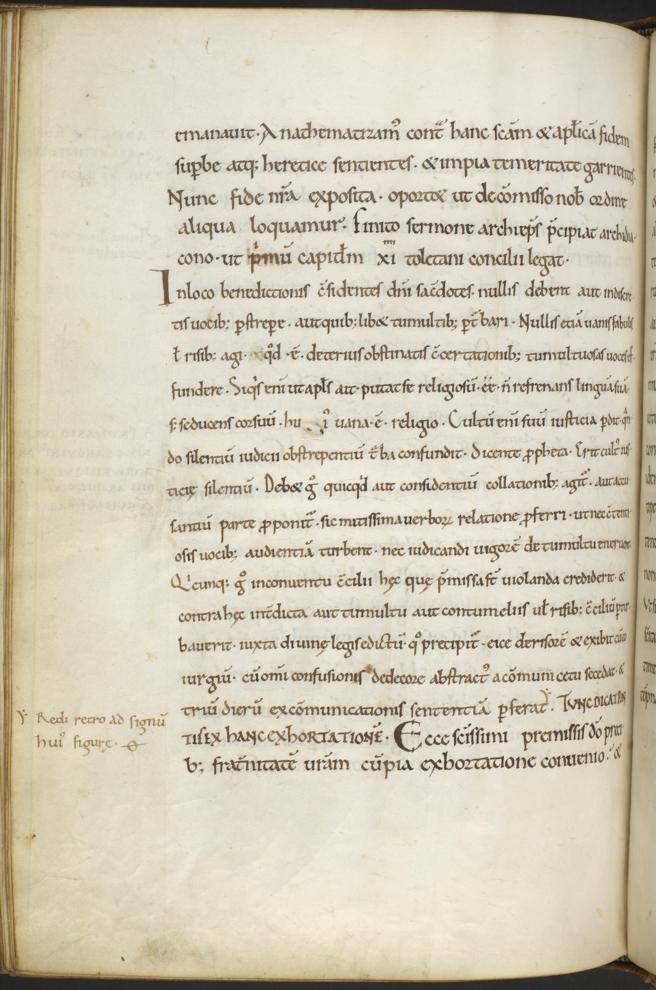 emanauit. Anathematizam᷒ cont̄ hanc sc̄am & apl̄icā fidem
suꝑbe atq; heretice sentientes. & impia temeritate garrientes.
Nunc fide nr̄a exposita. oport& ut de cōmisso nob̄ ordine
aliqua loquamur. Finito sermone archiep̄s p̄cipiat archidia
cono. ut p̄mū capitl̄m xi toletani concilii legat.
In loco benedictionis c̄sidentes dn̄i sac̄dotes. nullis debent aut indiscre
tis uocib; ꝑstrepe. aut quib;lib& tumultib; ꝑt̄bari. Nullis etiā uanis fabulis
ł risib; agi. qd̄ .ē. deterius obstinatis c̄certationib; tumultuosas uoces ef
fundere. Siq̄s eni᷒ ut apl̄s ait putat se religiosū .ēē. n̄ refrenans linguā suā.
s; seducens cor suū. hu uana .ē. religio. Cultū eni᷒ suū iusticia ꝑdit. qn̄
do silentiū iudicii obstrepentiū t̄ba confundit. Dicente ꝓpheta. Erit cult᷒ ius
ticię silentiū. Deb& g̊ quicq̄d aut considentiū collationib; agit᷒. aut accu
santiū parte ꝓponit᷒. sic mitissima uerboꝝ relatione ꝓferri. ut nec c̄tenti
osis uocib; audientiū turbent. nec iudicandi uigorē de tumultu eneruent.
Q'cunq; g̊ in conuentu c̄cilii hęc quę p̄missa st̄ uiolanda crediderit. &
contra hęc int̄dicta aut tumultu aut contumeliis ul̄ risib; c̄ciliū ꝑtur
bauerit. iuxta diuinę legis edictū. q̊ precipit᷒. eice derisorē & exibit cū eo
iurgiū. cū om̄i confusionis dedecore abstract᷒ a cōmuni cetu secedat. &
triū dierū excōmunicationis sententiā ꝑferat. TUNC DICATUR
TIS EX HANC EXHORTATIONĒ. Ecce sc̄issimi premissis dō preci
b; frat̄nitatē ur̄am cū pia exhortatione conuenio. &
Redi retro ad signū
hui᷒ figurę.